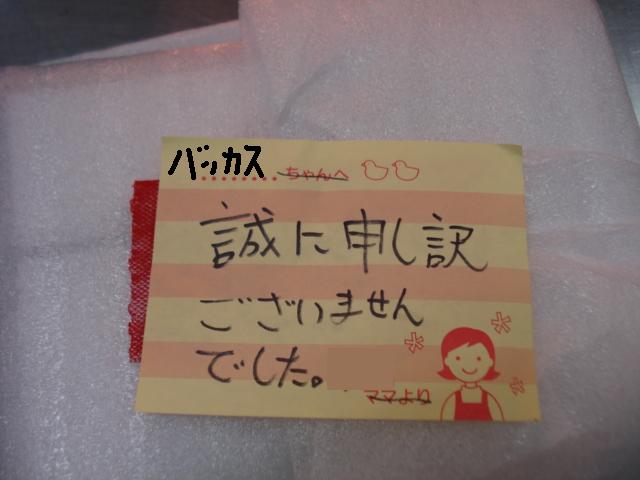 バッカス ちゃんへ
誠に申し訳
ございません
でした。
ママより